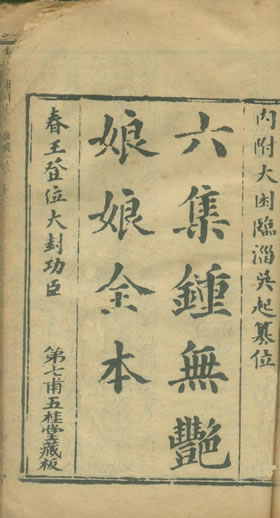 內附大困臨淄吳起篡位
六集鍾無艷
娘娘全本
春王登位大封功臣
第七甫五桂堂藏板